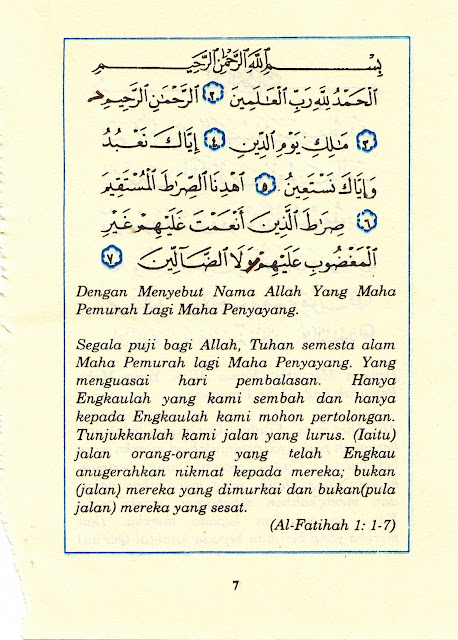 بِسْمِ اللَّهِ الرَّحْمَٰنِ الرَّحِيمِ
الْحَمْدُ لِلَّهِ رَبِّ الْعَالَمِينَ ٢ الرَّحْمَٰنِ الرَّحِيمِ
٣ مَالِكِ يَوْمِ الدِّينِ ٤ إِيَّاكَ نَعْبُدُ
وَإِيَّاكَ نَسْتَعِينُ ٥ اهْدِنَا الصِّرَاطَ الْمُسْتَقِيمَ
٦ صِرَاطَ الَّذِينَ أَنْعَمْتَ عَلَيْهِمْ غَيْرِ
الْمَغْضُوبِ عَلَيْهِمْ وَلَا الضَّالِّينَ ٧
Dengan Menyebut Nama Allah Yang Maha
Pemurah Lagi Maha Penyayang.
Segala puji bagi Allah, Tuhan semesta alam
Maha Pemurah lagi Maha Penyayang. Yang
menguasai hari pembalasan. Hanya
Engkaulah yang kami sembah dan hanya
kepada Engkaulah kami mohon pertolongan.
Tunjukkanlah kami jalan yang lurus. (Iaitu)
jalan orang-orang yang telah Engkau
anugerahkan nikmat kepada mereka; bukan
(jalan) mereka yang dimurkai dan bukan(pula
jalan) mereka yang sesat.
(Al-Fatihah 1: 1-7)
7